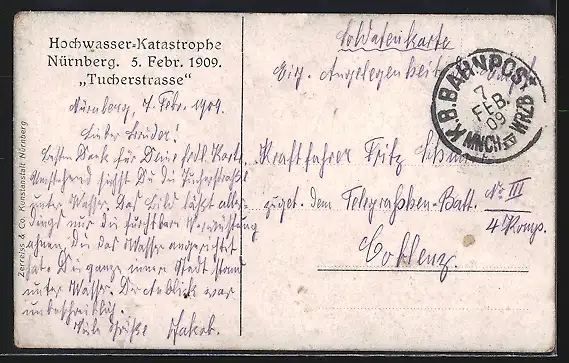 Hochwasser-Katastrophe
Nürnberg. 5. Febr. 1909.
„Tucherstrasse“
Nürnberg, 7. Febr. 1909.
Lieber Bruder!
Besten Dank für Deine frdl. Karte.
Umstehend siehst Du die Tucherstraße
unter Wasser. Das Bild läßt aller-
dings nur die furchtbare Verwüstung
ahnen, die das Wasser angerichtet
hat. Die ganze innere Stadt stand
unter Wasser. Der Anblick war
unbeschreiblich.
Viele Grüße Jakob.
Zerreiss & Co. Kunstanstalt Nürnberg
Soldatenkarte
Eig. Angelegenheit d.
K.B. BAHNPOST
7
FEB.
09
MNCH WRZB
IV
Kraftfahrer Fritz
zuget. dem Telegraphen-Batt. No III
4 Komp.
Coblenz.